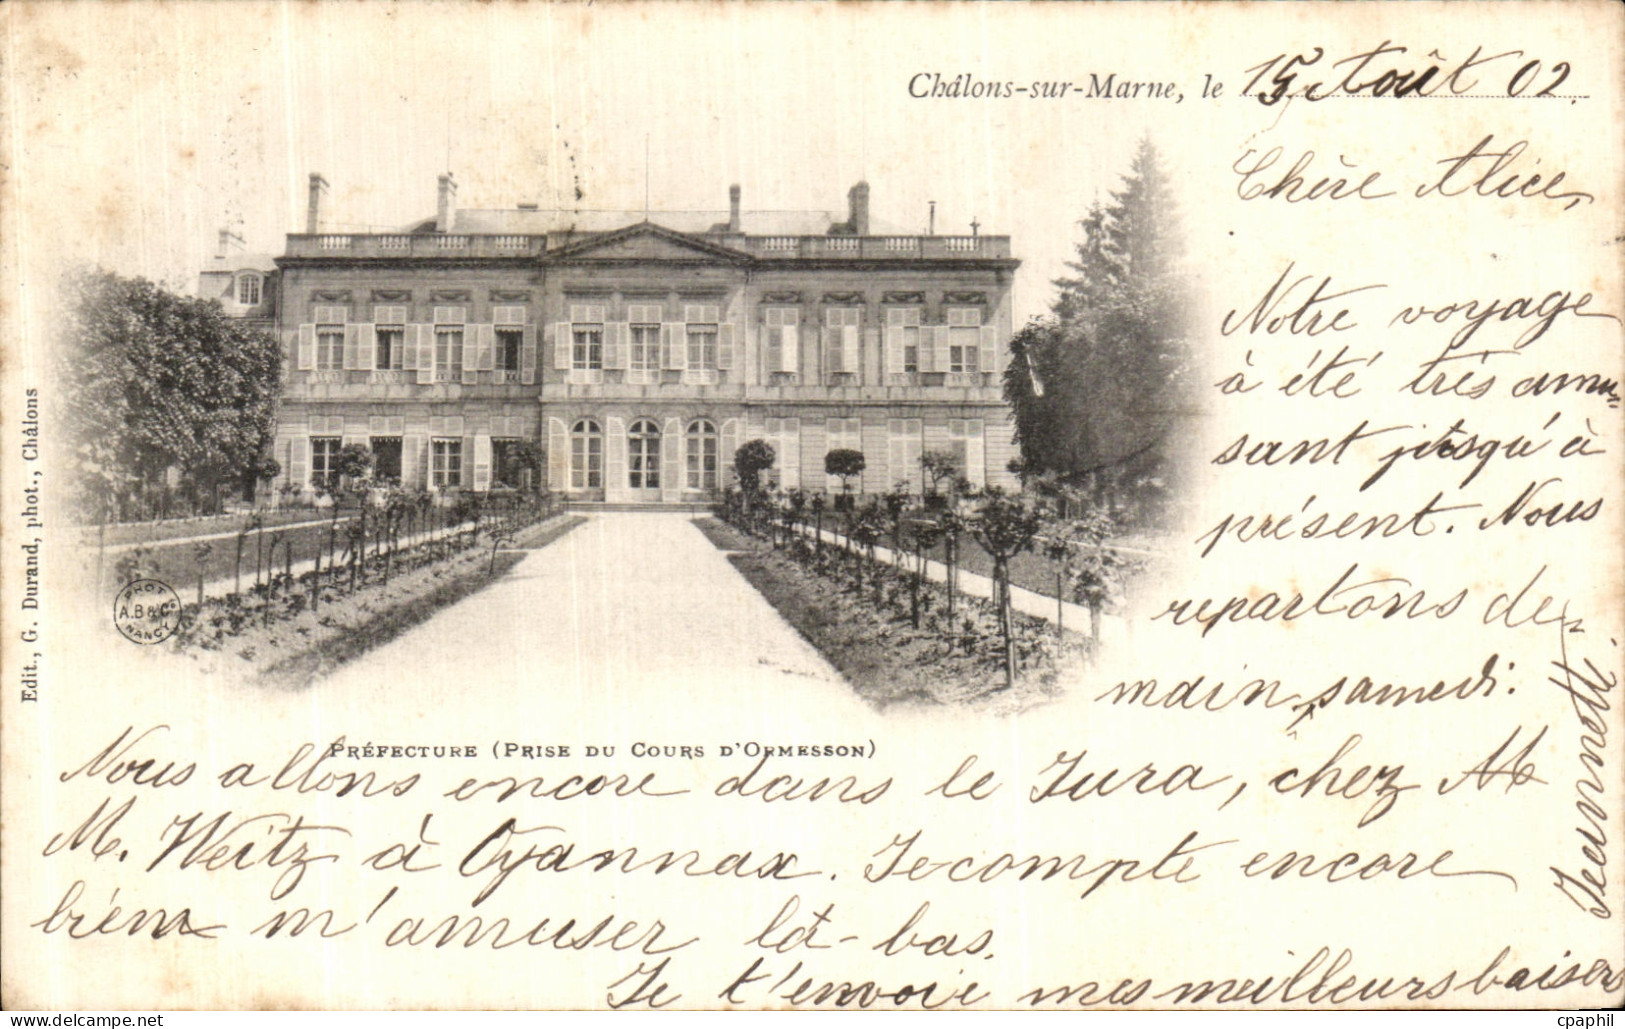 Châlons-sur-Marne, le 15 Août 02.
Chère Alice,
Notre voyage
à été très amu-
sant jusqu'à
présent. Nous
repartons de-
main, samedi.
PRÉFECTURE (PRISE DU COURS D'ORMESSON)
Nous allons encore dans le Jura, chez M
M. Weitz à Oyannax. Je compte encore
bien m'amuser là-bas.
Je t'envoie mes meilleurs baisers
Jeannette.
Edit., G. Durand, phot., Châlons
PHOT
A.B & Cie
NANCY
cpaphil